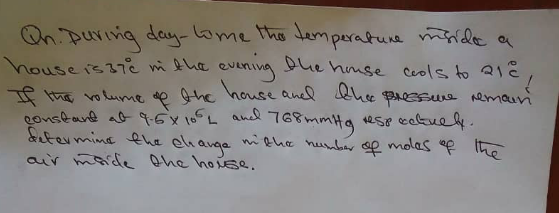 Qn. During day-time the temperature inside a
house is 37°c in the evening the house cools to 21°c,
If the volume of the house and the pressure remain
constant at 9.5 x 10⁵L and 768mmHg respectively.
determine the change in the number of moles of the
air inside the house.